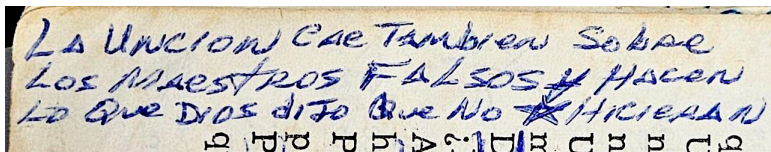 LA UNCION CAE TAMBIEN SOBRE
LOS MAESTROS FALSOS y HACEN
LO QUE DIOS dIJO QUE NO HICIERAN